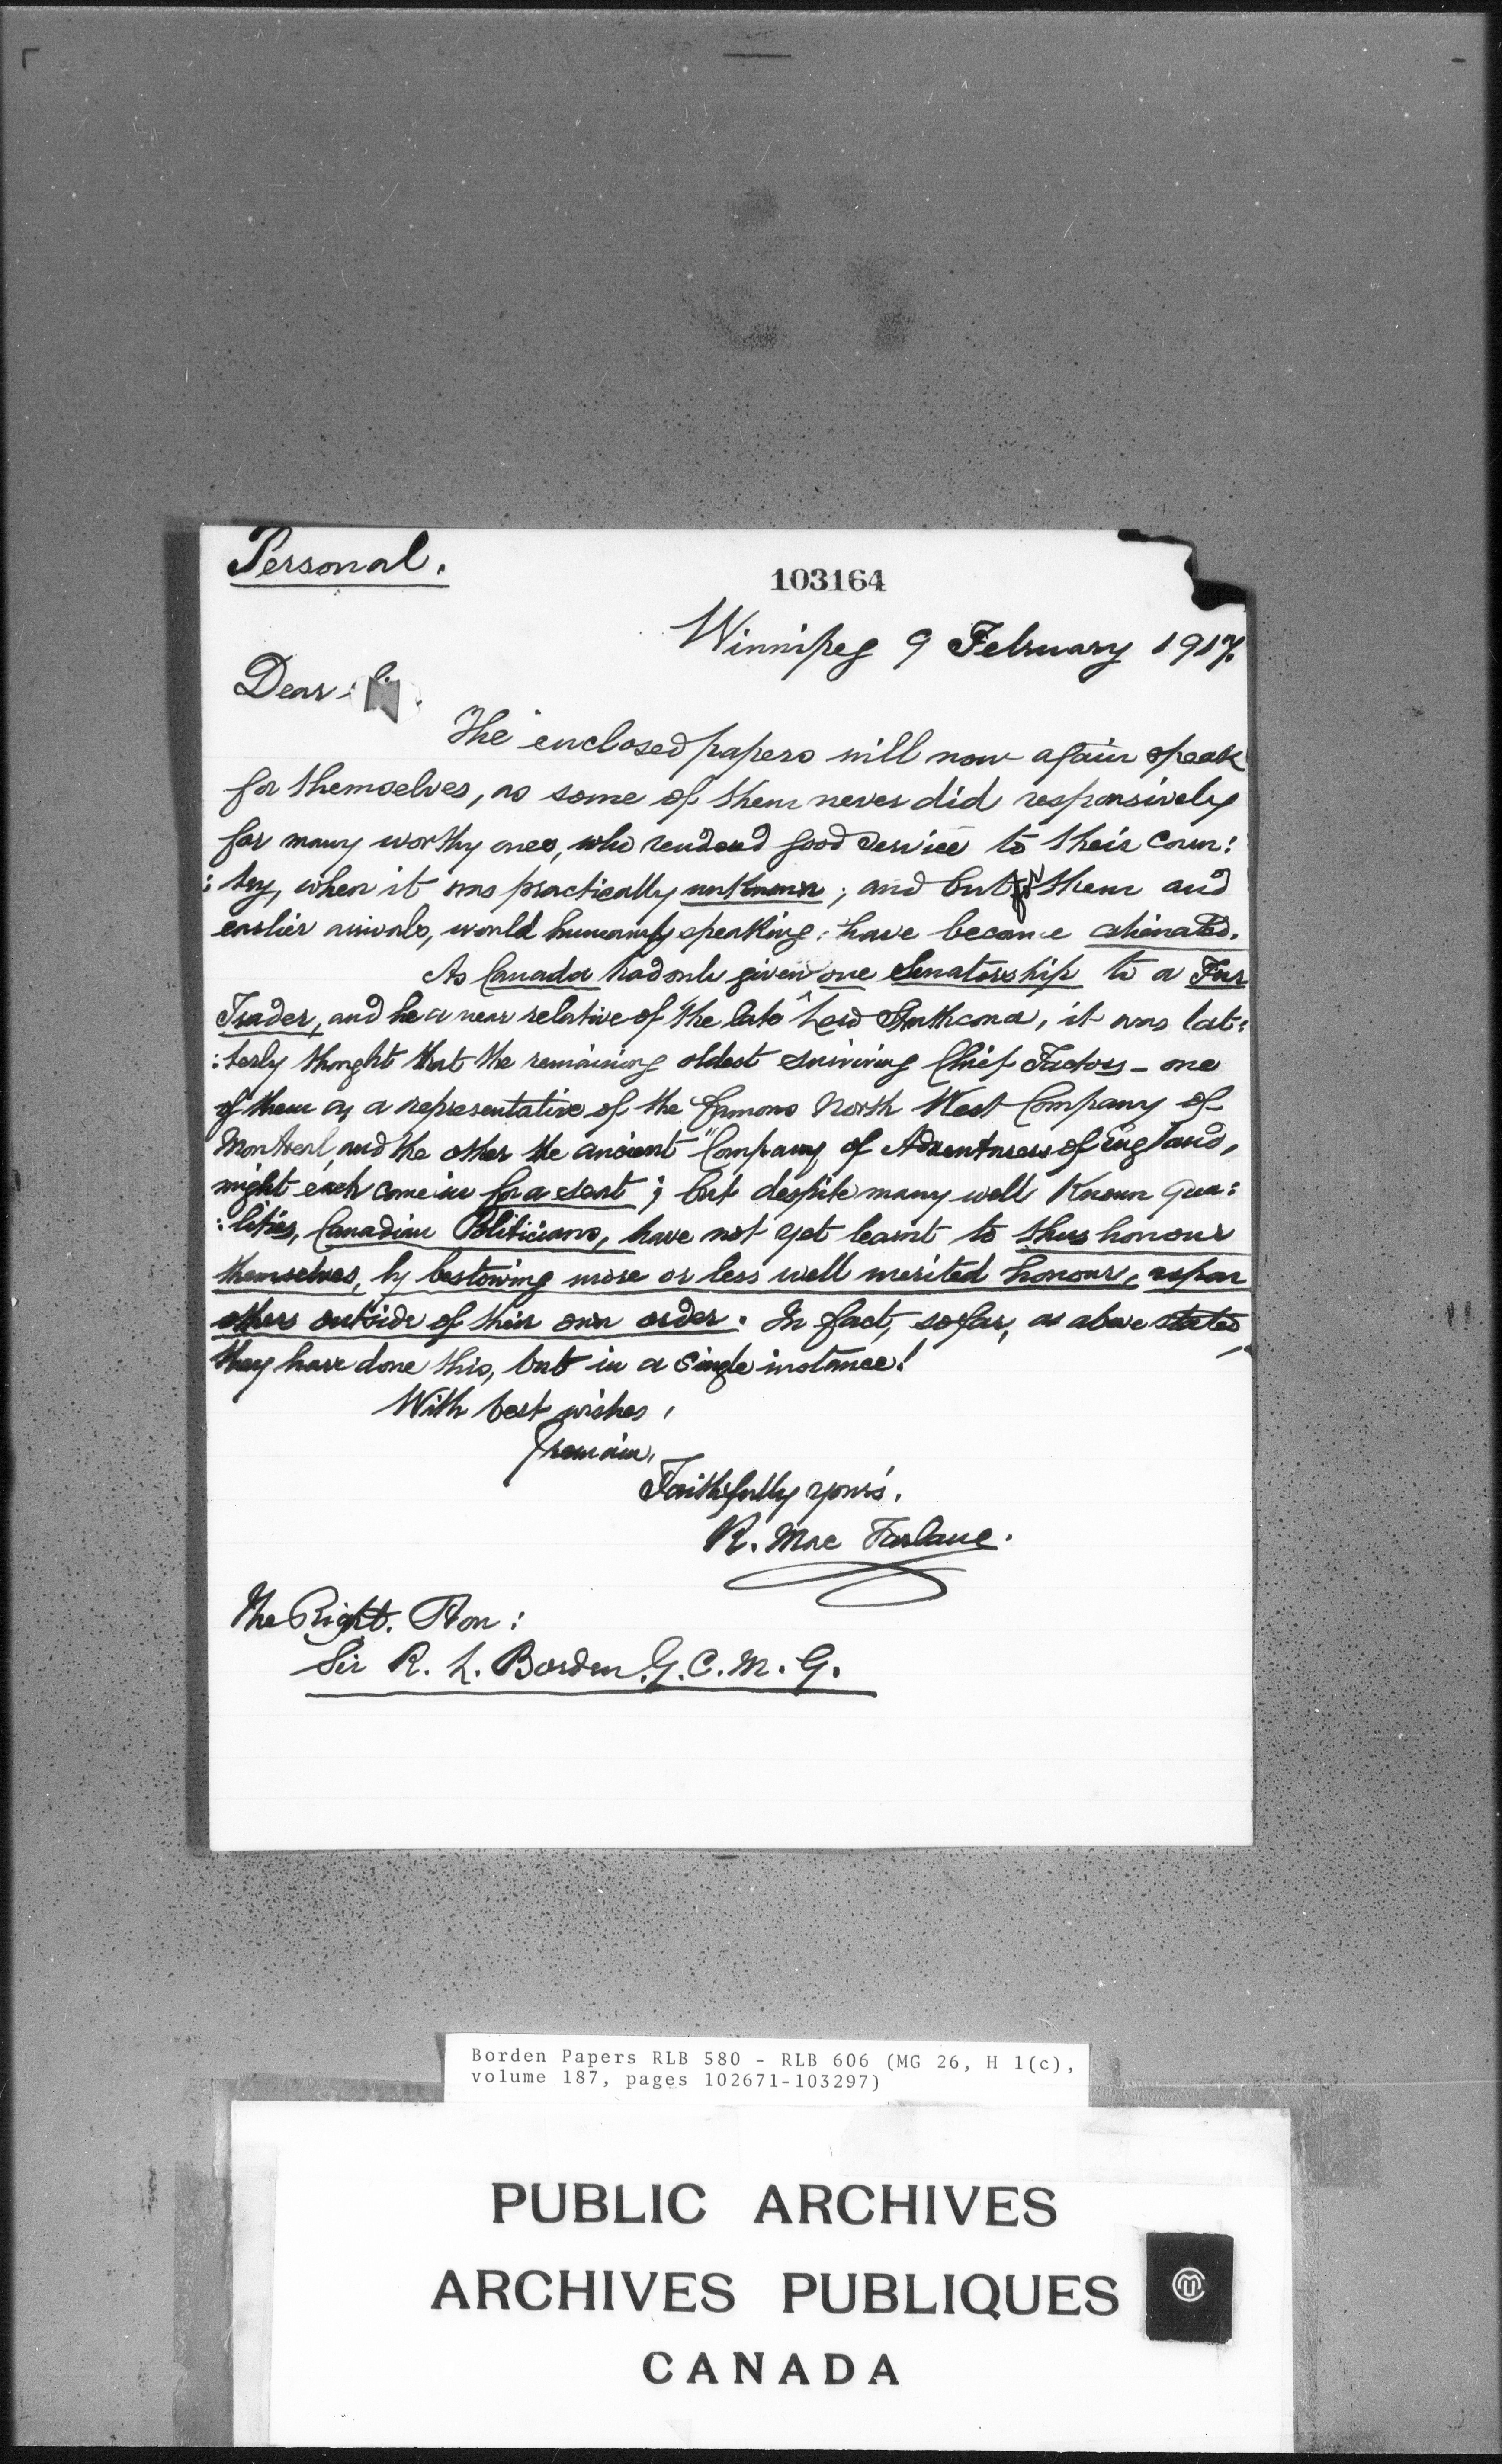 Personal.
103164
Winnipeg 9 February 1917.
Dear
The enclosed papers will now again speak
for themselves, as some of them never did responsively
for many worthy ones, who rendered good service to their coun:
:try, when it was practically unknown; and but for them and
earlier arrivals, would humanly speaking: have become alienated.
As Canada had only given one Senatorship to a Fur
Trader, and he a near relative of "the late" Lord Strathcona, it was lat:
:terly thought that the remaining oldest surviving Chief Factors - one
of them as a representative of the famous North West Company of
Montreal, and the other the ancient "Company of Adventurers of England,
might each come in for a seat; but despite many well Known qua:
:lities, Canadian Politicians, have not yet learnt to thus honour
themselves, by bestowing more or less well merited honour, upon
others outside of their own order. In fact, so far, as above stated,
they have done this, but in a single instance!
With best wishes,
I remain,
Faithfully yours,
R. Mac Farlane.
The Right. Hon:
Sir R. L. Borden, G.C.M.G.
Borden Papers RLB 580 - RLB 606 (MG 26, H 1(c),
volume 187, pages 102671-103297)
PUBLIC ARCHIVES
ARCHIVES PUBLIQUES
CANADA